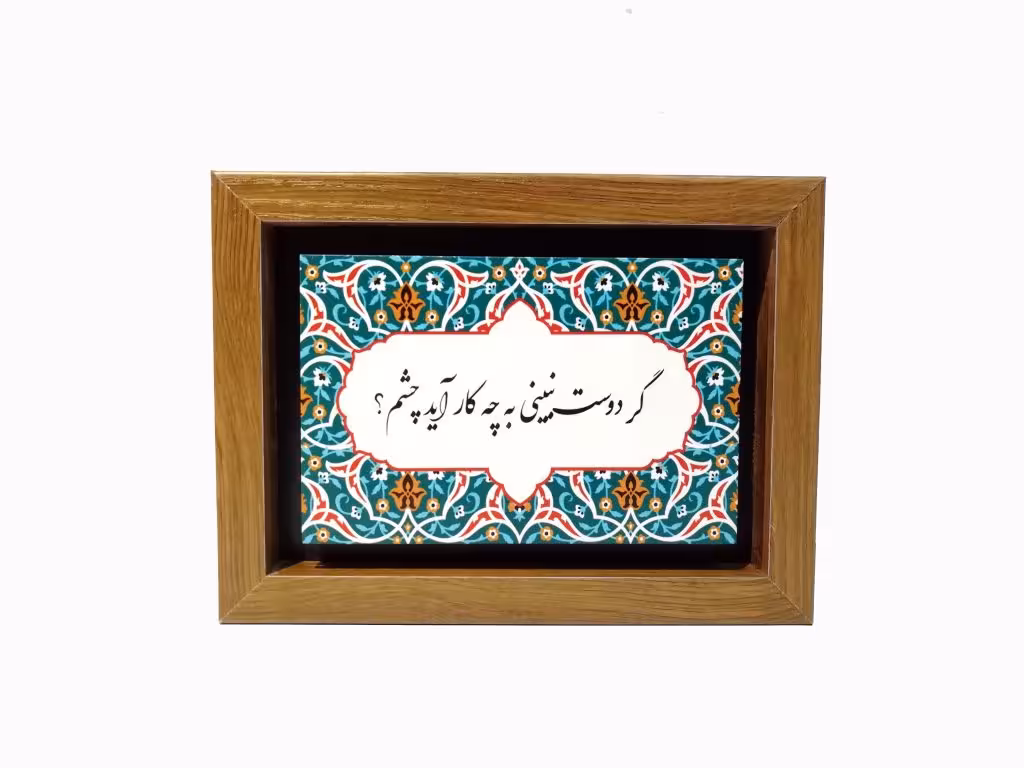 گر دوست نبینی به چه کار آید چشم؟